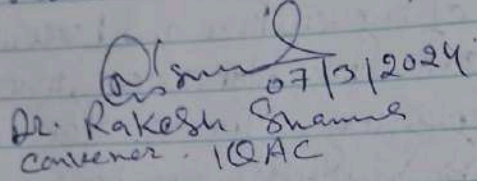 07/3/2024
Dr. Rakesh Sharma
Convener. IQAC